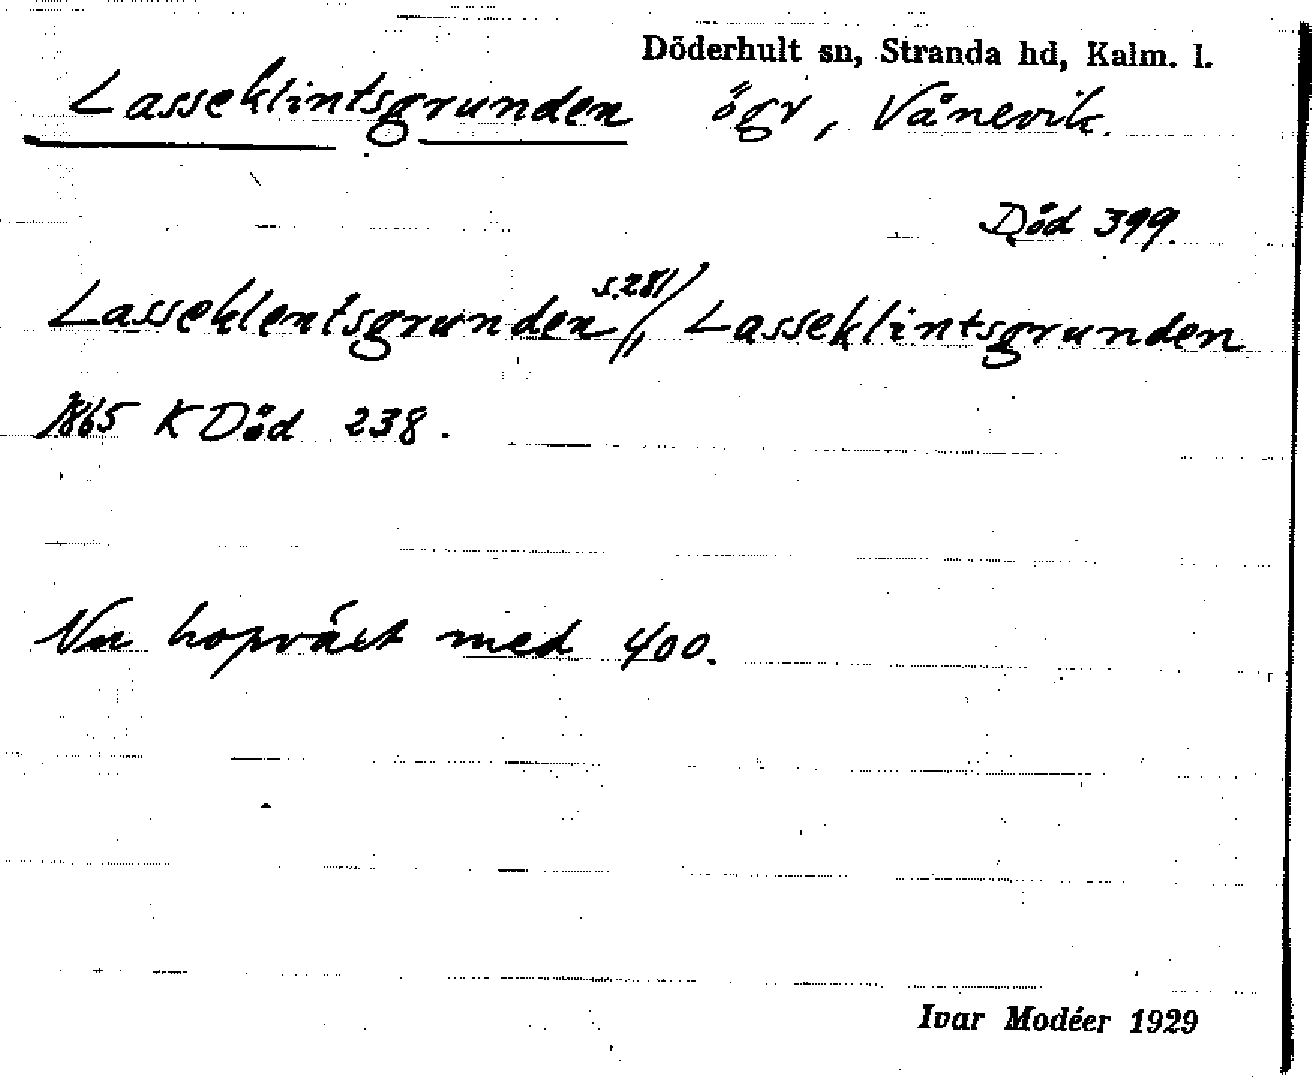 Döderhult sn, Stranda hd, Kalm. l.
Lasseklintsgrunden ögr, Vånevik.
Död 399.
Lasseklentsgrunden s.281//, Lasseklintsgrunden
1865 K Död 238.
Nu hopväxt med 400.
Ivar Modéer 1929